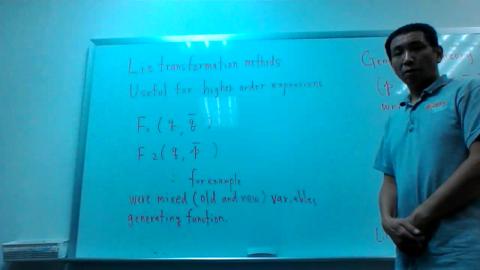 Lie transformation methods
Useful for higher order expressions
F₁ (q, q̄ )
F₂ (q, p̄ )
for example
were mixed (old and new) variables
generating function.